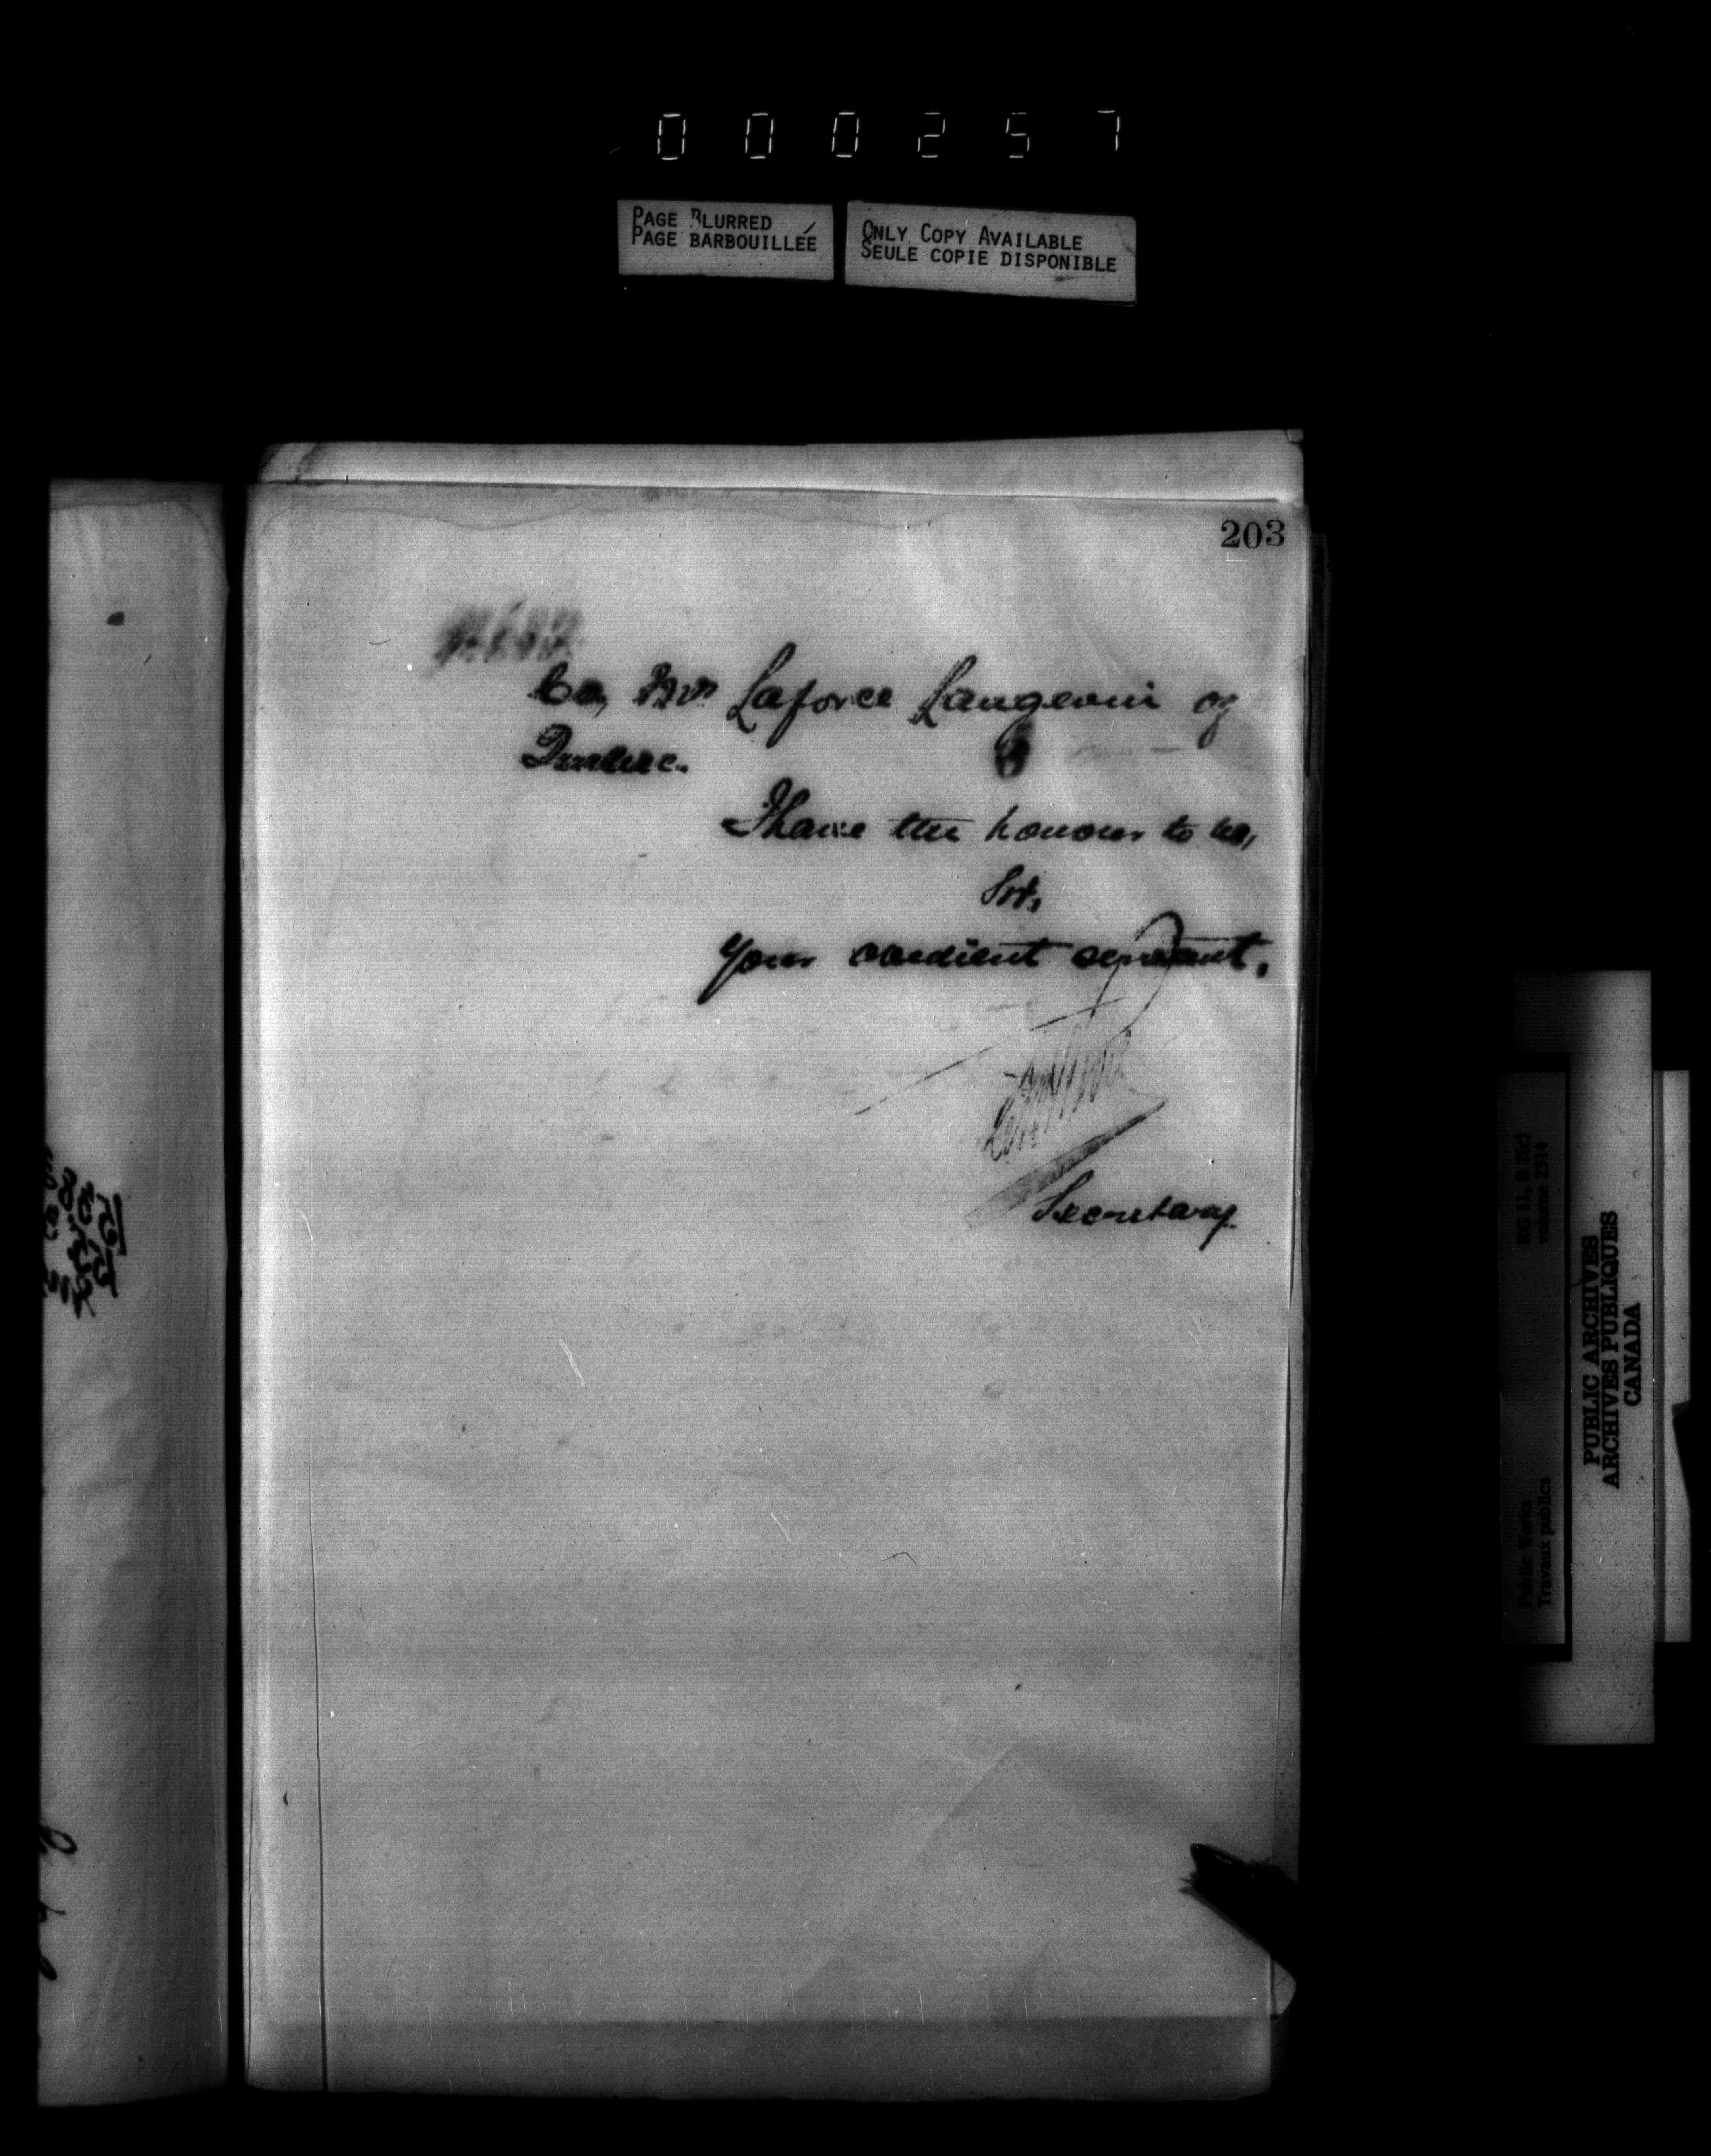 000257
PAGE BLURRED
PAGE BARBOUILLÉE
ONLY COPY AVAILABLE
SEULE COPIE DISPONIBLE
203
Co, Laforce Langevin of
Quebec.
I have the honour to be,
Sir,
Your obedient servant,
Secretary
RG 11, B 2(c)
volume 2314
Public Works
Travaux publics
PUBLIC ARCHIVES
ARCHIVES PUBLIQUES
CANADA